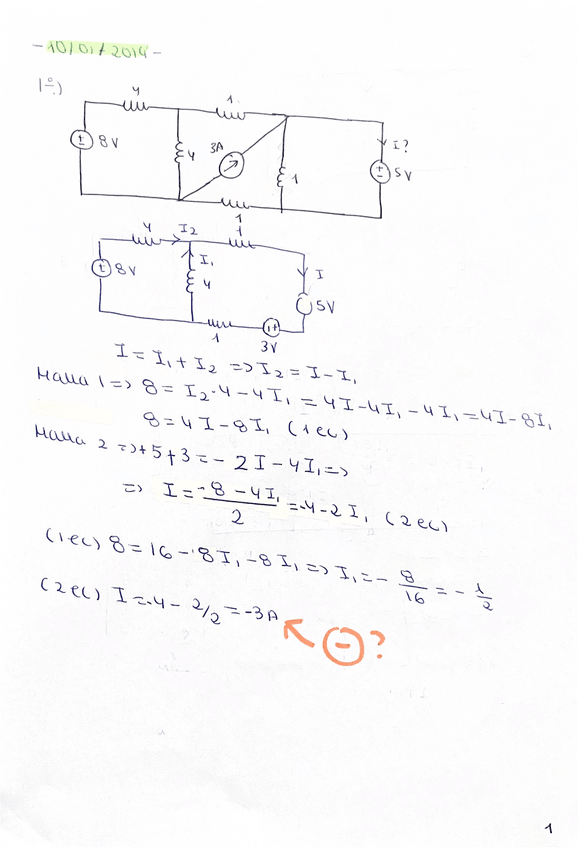 - 10/01/2014 -
1º)
4
1
8V
4
3A
1
I?
5V
1
4
I2
1
8V
I1
4
I
5V
1
3V
I = I1 + I2 => I2 = I - I1
Malla 1 => 8 = I2·4 - 4I1 = 4I - 4I1 - 4I1 = 4I - 8I1
8 = 4I - 8I1 (1ec)
Malla 2 => +5+3 = -2I - 4I1 =>
=> I = -8 - 4I1 / 2 = -4 - 2I1 (2ec)
(1ec) 8 = 16 - 8I1 - 8I1 => I1 = - 8/16 = - 1/2
(2ec) I = -4 - 2/2 = -3A
(-)?
1